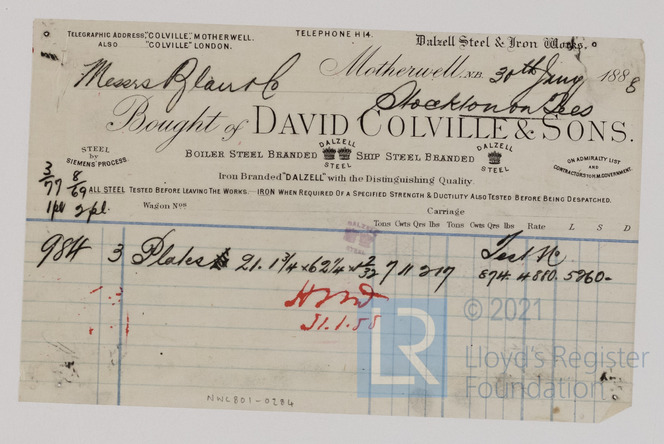 TELEGRAPHIC ADDRESS, "COLVILLE", MOTHERWELL.
ALSO "COLVILLE" LONDON.
TELEPHONE H14.
Dalzell Steel & Iron Works,
Motherwell, N.B. 30th Jany 1888
Messrs Blair & Co
Stockton on Tees
Bought of DAVID COLVILLE & SONS.
STEEL by SIEMENS' PROCESS.
BOILER STEEL BRANDED DALZELL STEEL SHIP STEEL BRANDED DALZELL STEEL
ON ADMIRALTY LIST AND CONTRACTORS FOR H.M. GOVERNMENT.
Iron Branded "DALZELL" with the Distinguishing Quality.
3/77 8/69
ALL STEEL TESTED BEFORE LEAVING THE WORKS.—IRON WHEN REQUIRED OF A SPECIFIED STRENGTH & DUCTILITY ALSO TESTED BEFORE BEING DESPATCHED.
1 pl 2 pl.
Wagon Nos
Carriage
Tons Cwts Qrs lbs Tons Cwts Qrs lbs Rate L S D
DALZELL STEEL
984 3 Plates 21. 1 3/4 x 62 1/4 x
Test
874. 4880. 5260
31.1.88
© 2021
LR
Lloyd's Register
Foundation
NWC801-0284